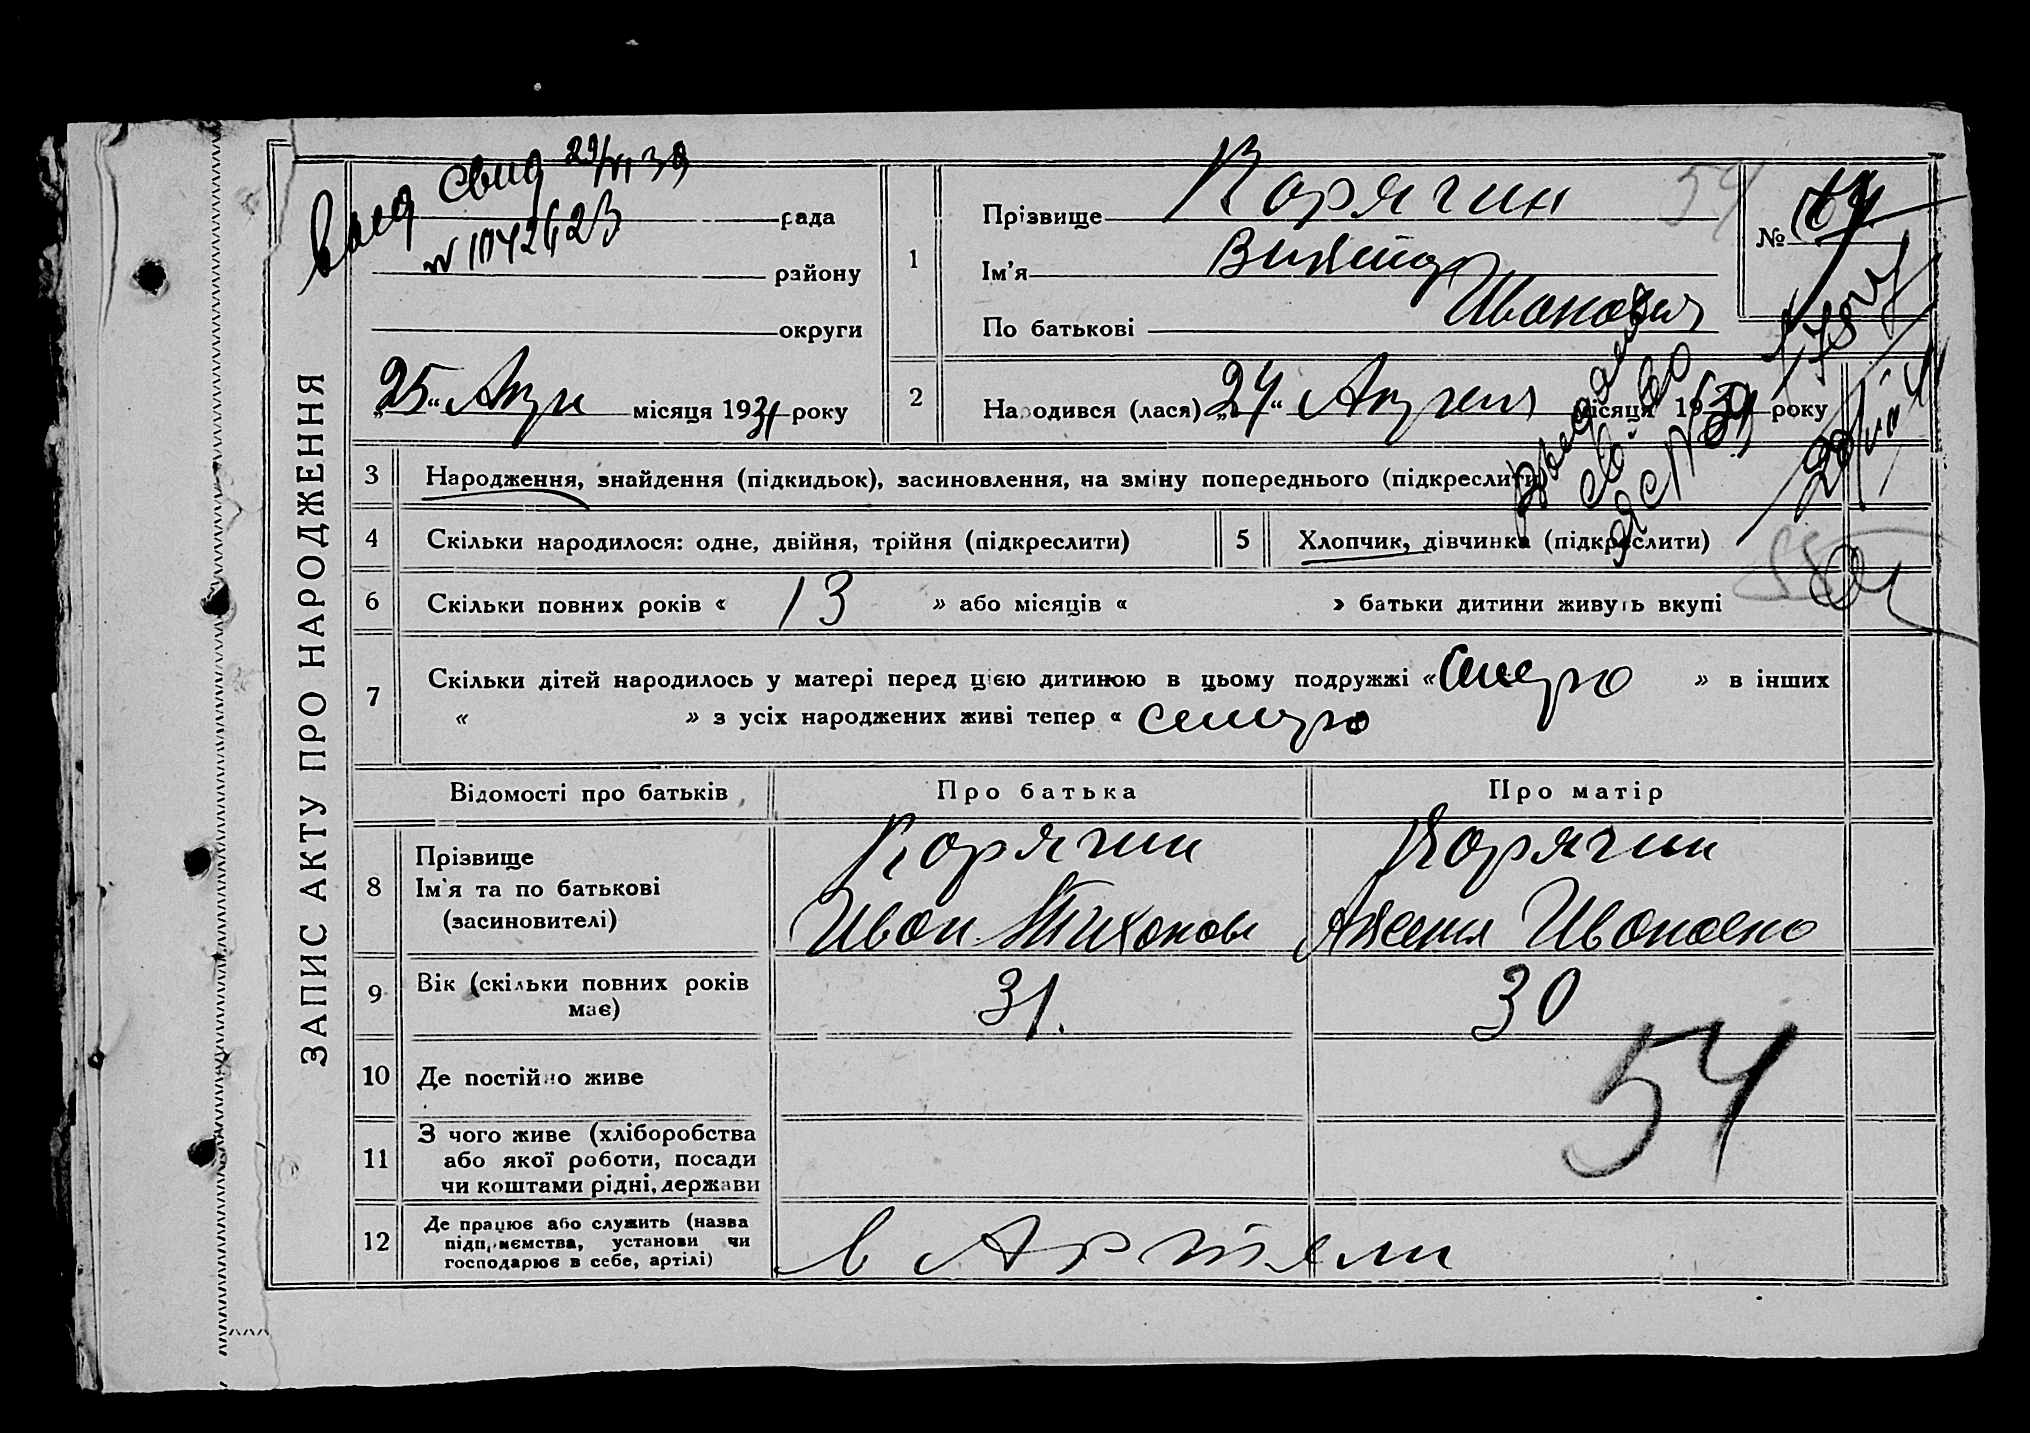 ЗАПИС АКТУ ПРО НАРОДЖЕННЯ
свид 29/VI 39
рада
району
округи
„25“ Апр місяця 1931 року
1
Прізвище Корягин
Ім'я
По батькові Иванович
№
54
2
Народився (лася) „24“ Апреля місяця 1931 року
3 Народження, знайдення (підкидьок), засиновлення, на зміну попереднього (підкреслити)
4 Скільки народилося: одне, двійня, трійня (підкреслити)
5 Хлопчик, дівчинка (підкреслити)
6 Скільки повних років « 13 » або місяців « » батьки дитини живуть вкупі
7 Скільки дітей народилось у матері перед цією дитиною в цьому подружжі « » в інших
« » з усіх народжених живі тепер «
Відомості про батьків
Про батька
Про матір
8
Прізвище
Ім'я та по батькові
(засиновителі)
Корягин
Иван Тихонов
Корягин
Ивановно
9 Вік (скільки повних років
має)
31.
30
10 Де постійно живе
54
11 З чого живе (хліборобства
або якої роботи, посади
чи коштами рідні, держави
12 Де працює або служить (назва
підприємства, установи чи
господарює в себе, артілі)
в Артели